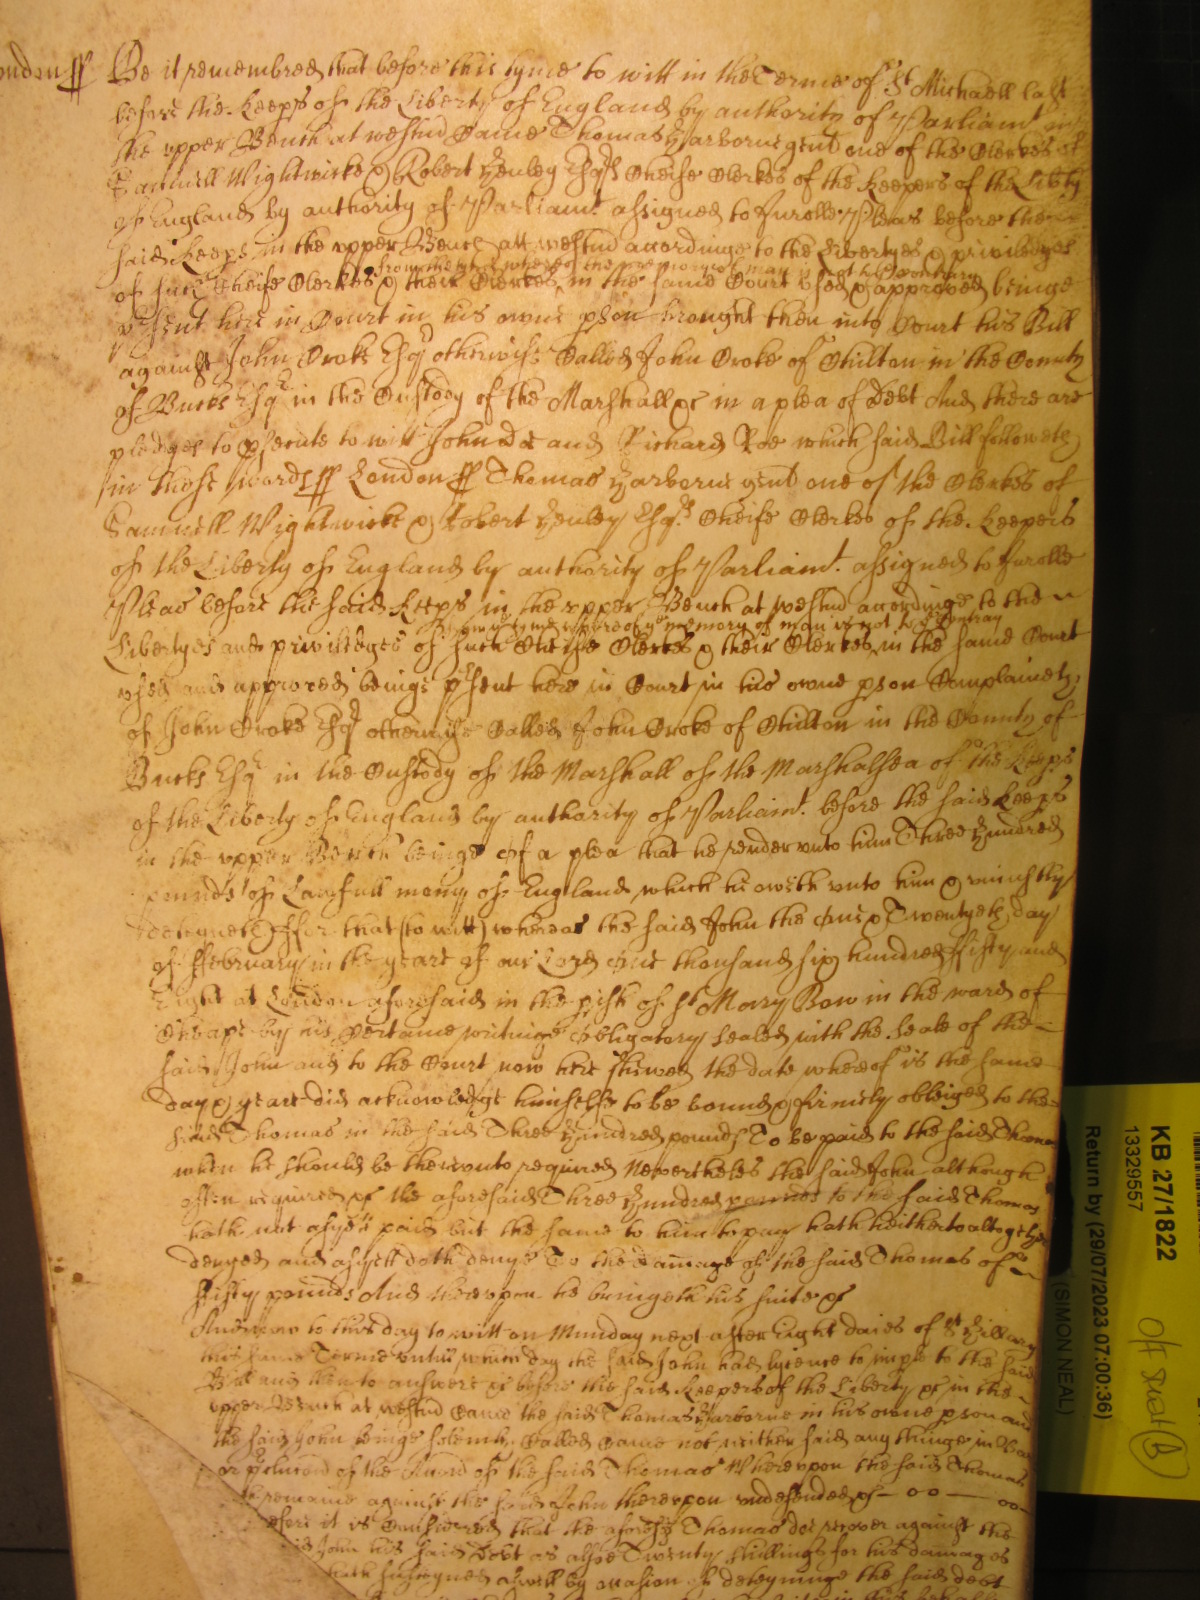 ondon ss Be it remembred that before this tyme to witt in the Terme of St Michaell last
before the Keeps of the Liberty of England by authority of Parliamt in
the upper Bench at westmd Came Thomas Yarborne gent one of the Clerkes of
Samuell Wightwicke & Robert Henley Esqrs Cheife Clerkes of the Keepers of the Libty
of England by authority of Parliamt assigned to Inrolle Pleas before the
said Keeps in the upper Bench att westmd accordinge to the Libertyes & priviledges
from the tyme whereof the memory of man is not to the contrary
of such Cheife Clerkes & their Clerkes in the same Court used & approved beinge
psent here in Court in his owne pson brought then into Court his Bill
against John Croke Esqr otherwise Called John Croke of Chilton in the County
of Bucks Esqr in the Custody of the Marshall &c in a plea of Debt And there are
pledges to psecute to witt John Doe and Richard Roe which said Bill followeth
in these words ss London ss Thomas Yarborne gent one of the Clerkes of
Samuell Wightwicke & Robert Henley Esqrs Cheife Clerkes of the Keepers
of the Liberty of England by authority of Parliamt. assigned to Inrolle
Pleas before the said Keeps in the upper Bench at westmd accordinge to the
from the tyme whereof ye memory of man is not to ye contrary
Libertyes and priviledges of such Cheife Clerkes & their Clerkes in the same Court
used and approved beinge psent here in Court in his owne pson Complaineth
of John Croke Esqr otherwise Called John Croke of Chilton in the County of
Bucks Esqr in the Custody of the Marshall of the Marshalsea of the Keeps
of the Liberty of England by authority of Parliamt. before the said Keeps
in the upper Bench beinge of a plea that he render unto him Three Hundred
pounds of Lawfull mony of England which he oweth unto him & uniustly
deteyneth ffor that (to witt) whereas the said John the One & Twentyeth day
of ffebruary in the yeare of our Lord One thousand six hundred ffifty and
Eight at London aforesaid in the pish of St Mary Bow in the ward of
Cheape by his Certaine writinge Obligatory sealed with the seale of the
said John and to the Court now here shewed the date whereof is the same
day & yeare did acknowledge himselfe to be bound & firmely obleiged to the
said Thomas in the said Three Hundred pounds To be paid to the said Thomas
when he should be thereunto required Neverthelss the said John although
often required &c the aforesaid Three Hundred pounds to the said Thomas
hath not as yett paid but the same to him to pay hath hitherto altogether
denyed and as yett doth denye To the damage of the said Thomas of
ffifty pounds And thereupon he bringeth his suite &c
And now to this day to witt on Munday next after Eight daies of St Hillary
this same Terme untill which day the said John had lycence to imple to the said
Bill and then to answere &c before the said Keepers of the Liberty &c in the
upper Bench at westmd Came the said Thomas Yarborne in his owne pson and
the said John beinge solemly Called Came not neither said any thinge in Bar
or pclusion of the Accion of the said Thomas Whereupon the said Thomas
remaine against the said John thereupon undefended &c
efore it is Considered that the aforesd Thomas doe recover against the
John his said Debt as alsoe Twenty shillings for his damages
hath susteyned aswell by occasion of deteyninge the said debt
KB 27/1822
13329557
Return by (29/07/2023 07:00:36)
(SIMON NEAL)